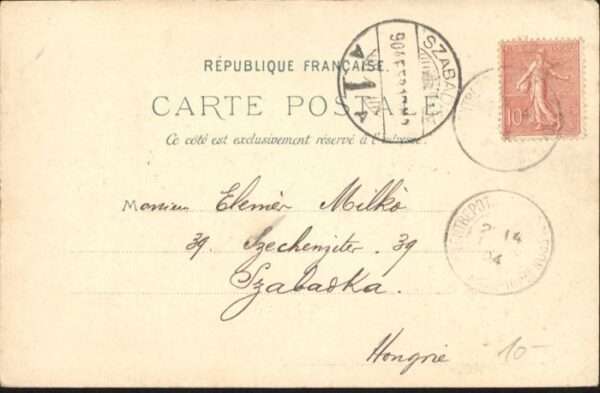 RÉPUBLIQUE FRANÇAISE.
CARTE POSTALE
Ce côté est exclusivement réservé à l'adresse.
SZABAD
10
Monsieur Elemèr Milkò
39. Szechenyiter. 39
Szabadka.
Hongrie
10-
2 14
04